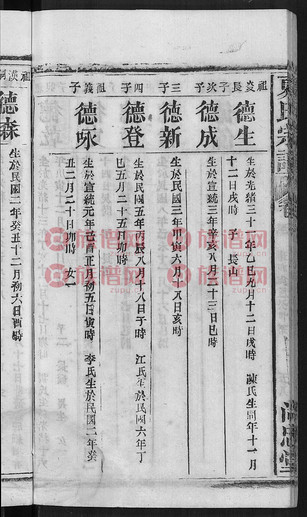 祖炎長子
德生
生於光緒三十一年乙巳九月十二日戌時 陳氏生同年十一月
十二日戌時 子 長山
次子
德成
生於宣統三年辛亥八月二十三日巳時
三子
德新
生於民國三年甲寅六月十八日亥時
四子
德登
生於民國五年丙辰八月十八日子時 江氏生於民國六年丁
巳五月二十五日卯時
祖義子
德琢
生於宣統元年己酉正月初五日寅時 李氏生於民國二年癸
丑二月二十日卯時 女二
德森
生於民國二年癸丑十二月初六日酉時